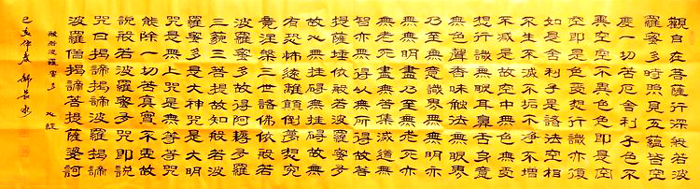 觀自在菩薩行深般若波
羅蜜多時照見五蘊皆空
度一切苦厄舍利子色不
異空空不異色色即是空
空即是色受想行識亦復
如是舍利子是諸法空相
不生不滅不垢不淨不增
不減是故空中無色無受
想行識無眼耳鼻舌身意
無色聲香味觸法無眼界
乃至無意識界無無明亦
無無明盡乃至無老死亦
無老死盡無苦集滅道無
智亦無得以無所得故菩
提薩埵依般若波羅蜜多
故心無罣礙無罣礙故無
有恐怖遠離顛倒夢想究
竟涅槃三世諸佛依般若
波羅蜜多故得阿耨多羅
三藐三菩提故知般若波
羅蜜多是大神咒是大明
咒是無上咒是無等等咒
能除一切苦真實不虛故
說般若波羅蜜多咒即說
咒曰揭諦揭諦波羅揭諦
波羅僧揭諦菩提薩婆訶
般若波羅蜜多心經
己亥仲夏